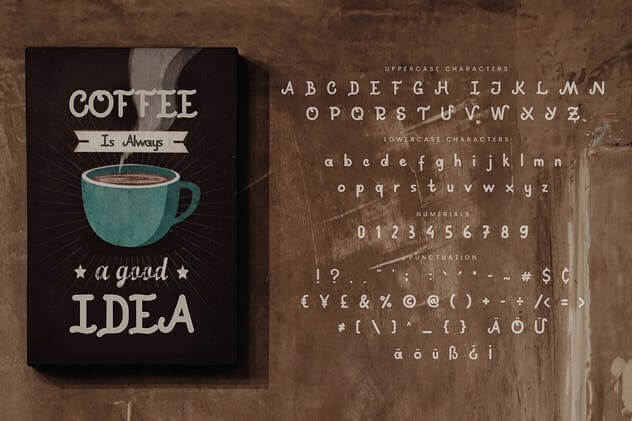 COFFEE
Is Always
a good
IDEA
UPPERCASE CHARACTERS
A B C D E F G H I J K L M N
O P Q R S T U V W X Y Z
LOWERCASE CHARACTERS
a b c d e f g h i j k l m n
o p q r s t u v w x y z
NUMERIALS
0 1 2 3 4 5 6 7 8 9
PUNCTUATION
! ? . . ¨ ˙ ; : ` ´ " - ~ # $ ¢
€ ¥ £ & % © @ ( ) + - ÷ / < = >
≠ [ \ ] ^ _ { } Ä Ö Ü
ä ö ü ß ¿ ¡